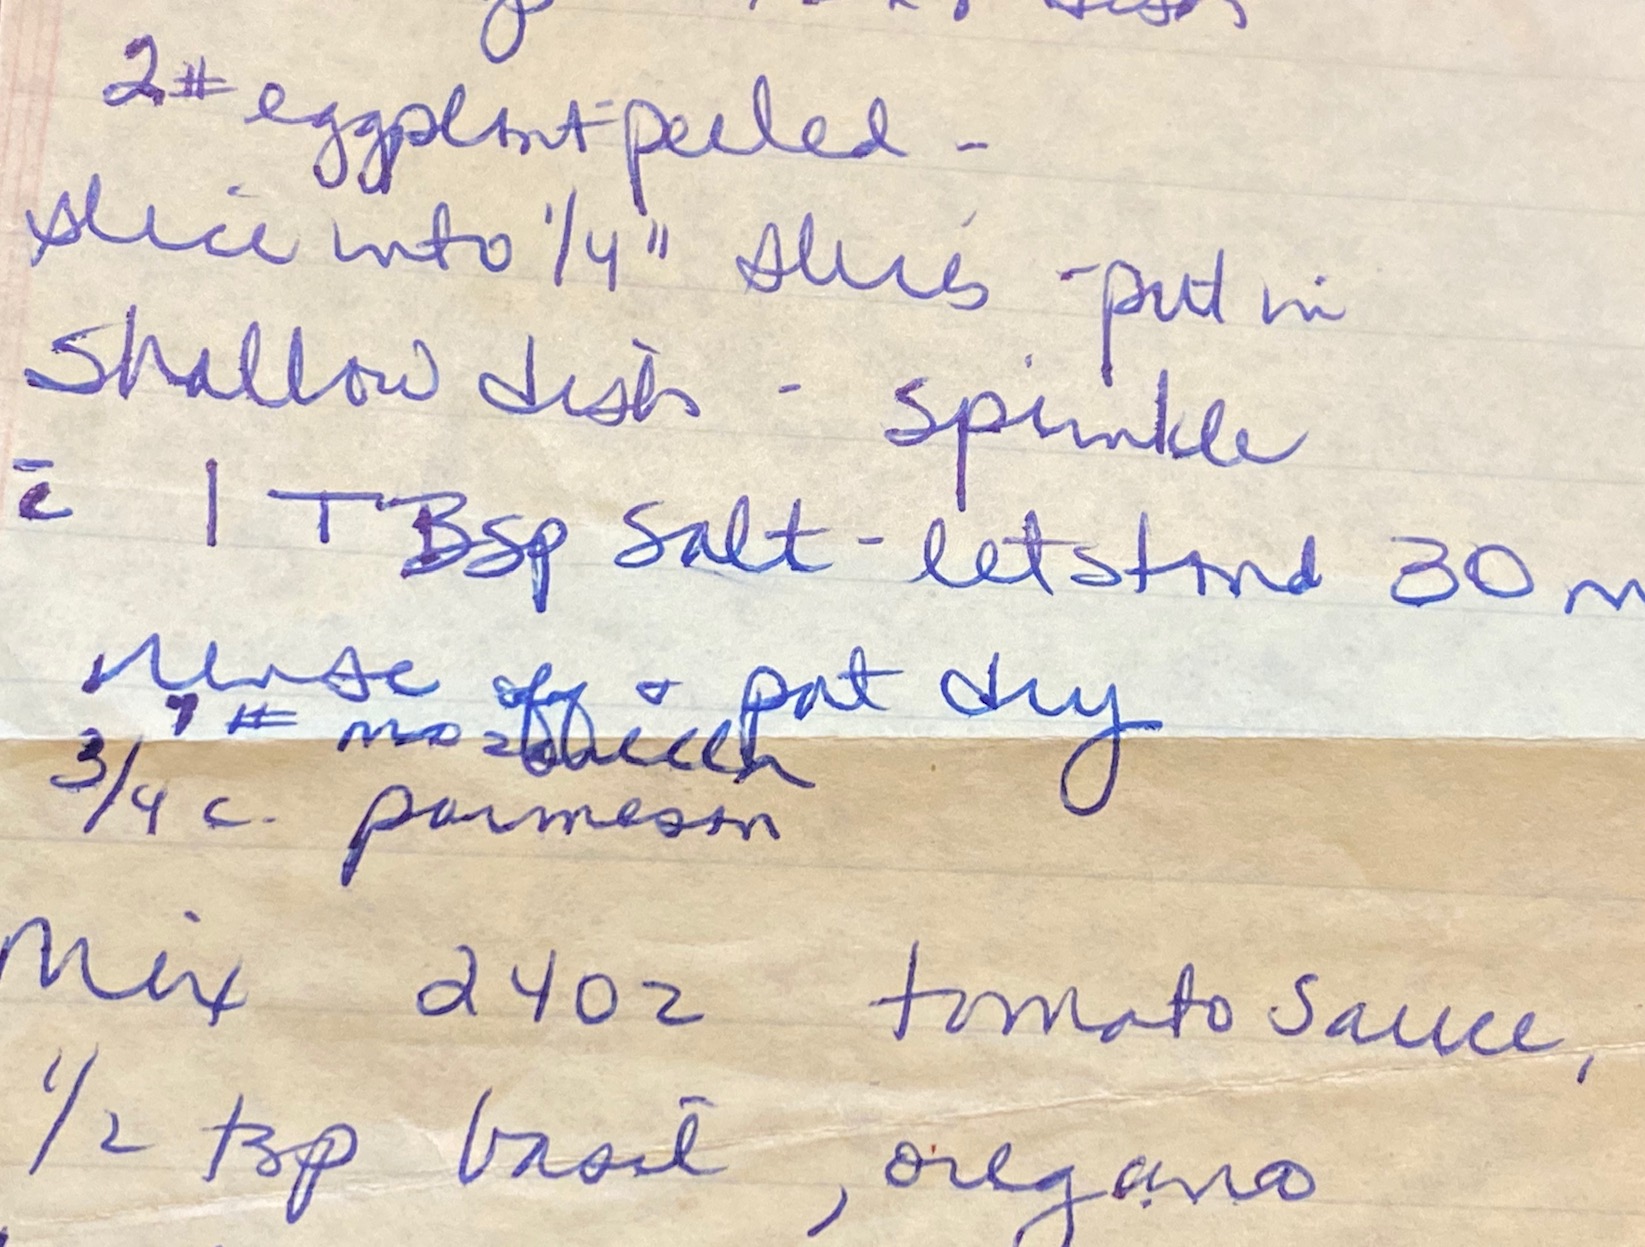 dish
2# eggplant - peeled -
slice into 1/4" slices - put in
shallow dish - sprinkle
c̄ 1 TBsp salt - let stand 30 m
rinse off & pat dry
1# mozzarella
3/4 c. parmesan
Mix 24oz tomato sauce,
1/2 tsp basil, oregano